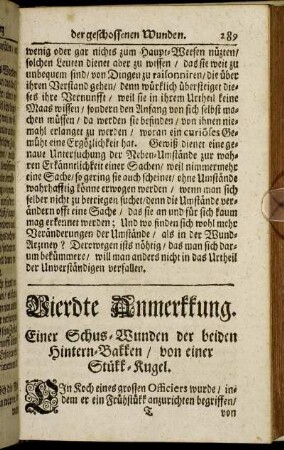 der geschossenen Wunden. 289
wenig oder gar nichts zum Haupt-Weesen nüzten/
solchen Leuten dienet aber zu wissen / das sie weit zu
unbequem sind/ von Dingen zu raisonniren/ die über
ihren Verstand gehen/ denn würklich übersteiget die-
ses ihre Vernunfft / weil sie in ihrem Urtheil keine
Maas wissen / sondern den Anfang von sich selbst ma-
chen müssen/ da werden sie befinden / von ihnen nie-
mahl erlanget zu werden / woran ein curiöses Ge-
müht eine Ergözlichkeit hat. Gewiß dienet eine ge-
naue Untersuchung der Neben-Umstände zur wah-
ren Erkänntlichkeit einer Sachen/ weil nimmermehr
eine Sache/ so gering sie auch scheinet/ ohne Umstände
wahrhafftig könne erwogen werden / wenn man sich
selber nicht zu betriegen suchet/ denn die Umstände ver-
ändern offt eine Sache / das sie an und für sich kaum
mag erkennet werden; Und wo finden sich wohl mehr
Veränderungen der Umstände / als in der Wund-
Arzeney? Derowegen ists nöhtig / das man sich dar-
um bekümmere/ will man anders nicht in das Urtheil
der Unverständigen verfallen.
Vierdte Anmerkkung.
Einer Schus-Wunden der beiden
Hintern-Bakken / von einer
Stükk-Kugel.
EIn Koch eines grossen Officiers wurde / in-
dem er ein Frühstükk anzurichten begriffen/
T von